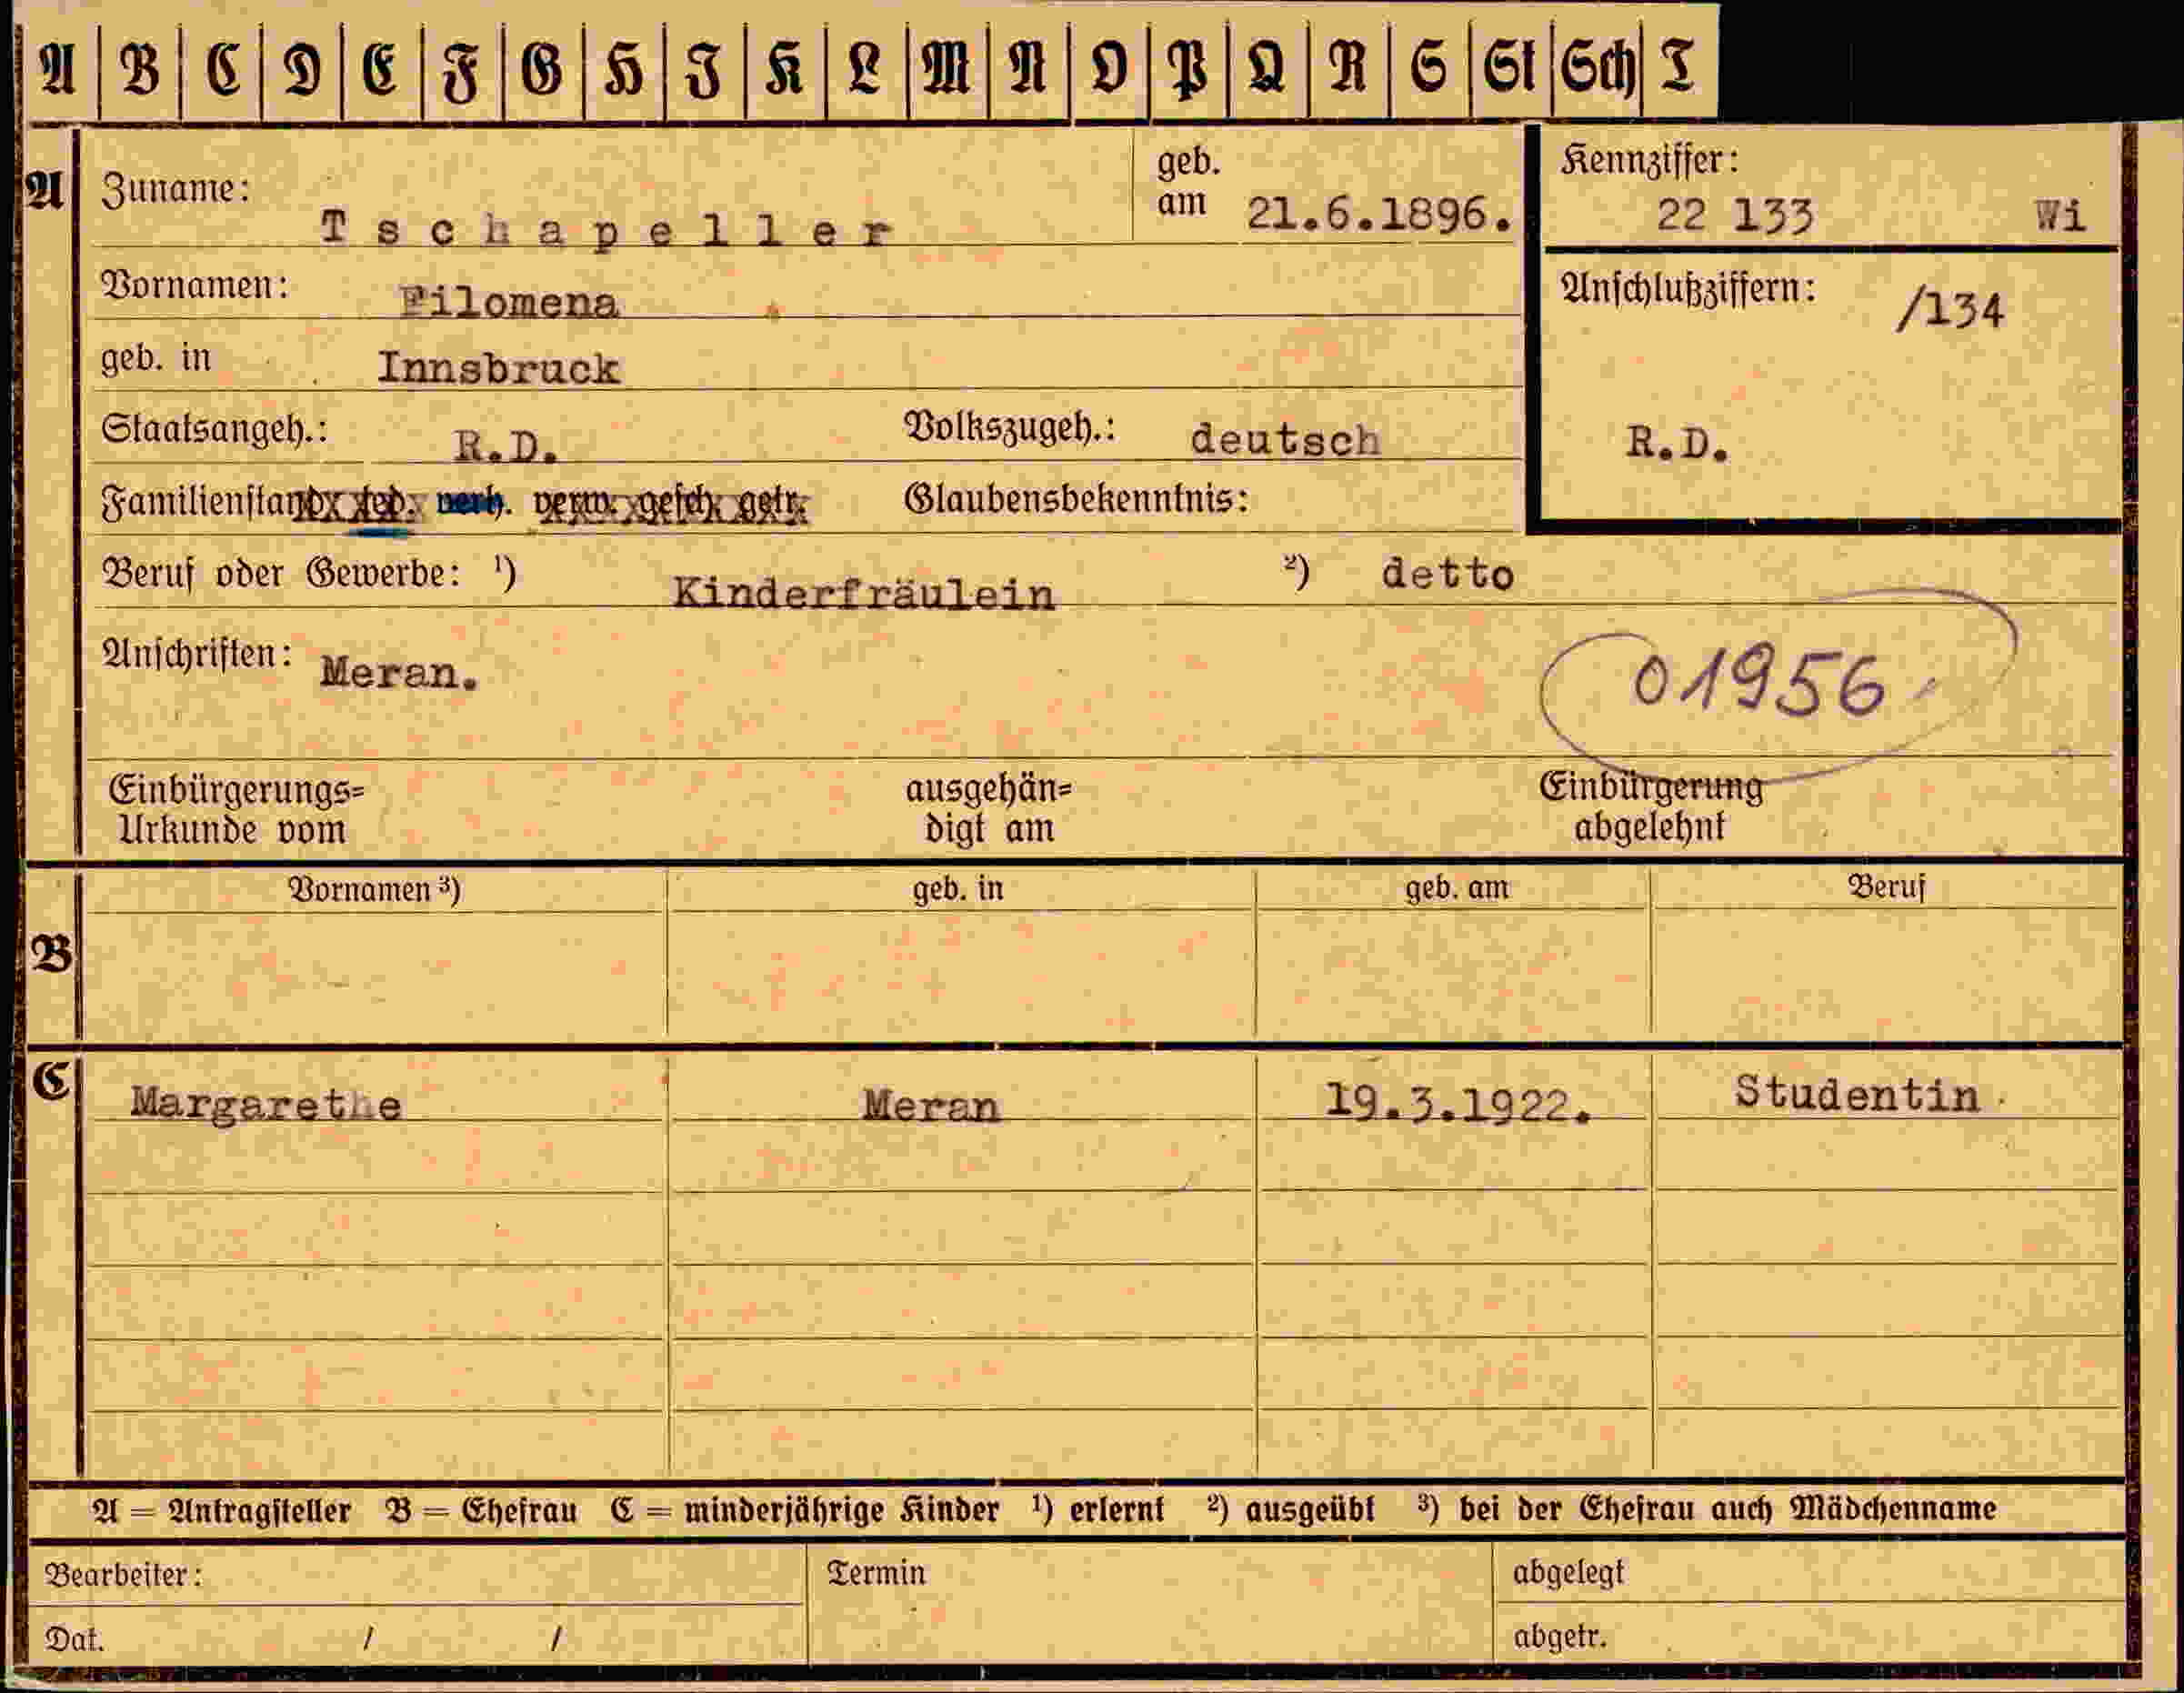 A B C D E F G H J K L M N O P Q R S St Sch T
A Zuname: Tschapeller geb. am 21.6.1896. Kennziffer: 22 133 Wi
Vornamen: Filomena Anschlußziffern: /134
geb. in Innsbruck
Staatsangeh.: R.D. Volkszugeh.: deutsch R.D.
Familienstand: led. verh. verw. gesch. getr. Glaubensbekenntnis:
Beruf oder Gewerbe: ¹) Kinderfräulein ²) detto
Anschriften: Meran. 01956
Einbürgerungs= ausgehän= Einbürgerung
Urkunde vom digt am abgelehnt
Vornamen ³) geb. in geb. am Beruf
B
C Margarethe Meran 19.3.1922. Studentin
A = Antragsteller B = Ehefrau C = minderjährige Kinder ¹) erlernt ²) ausgeübt ³) bei der Ehefrau auch Mädchenname
Bearbeiter: Termin abgelegt
Dat. / / abgetr.